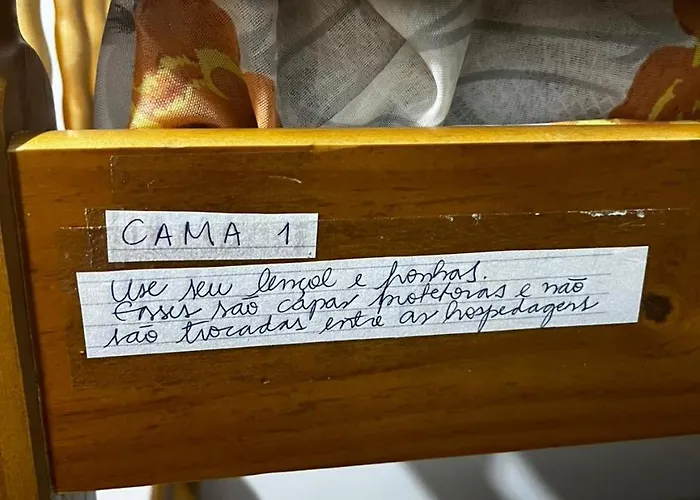 CAMA 1
Use seu lençol e fronhas.
Esses são capas protetoras e não
são trocadas entre as hospedagens